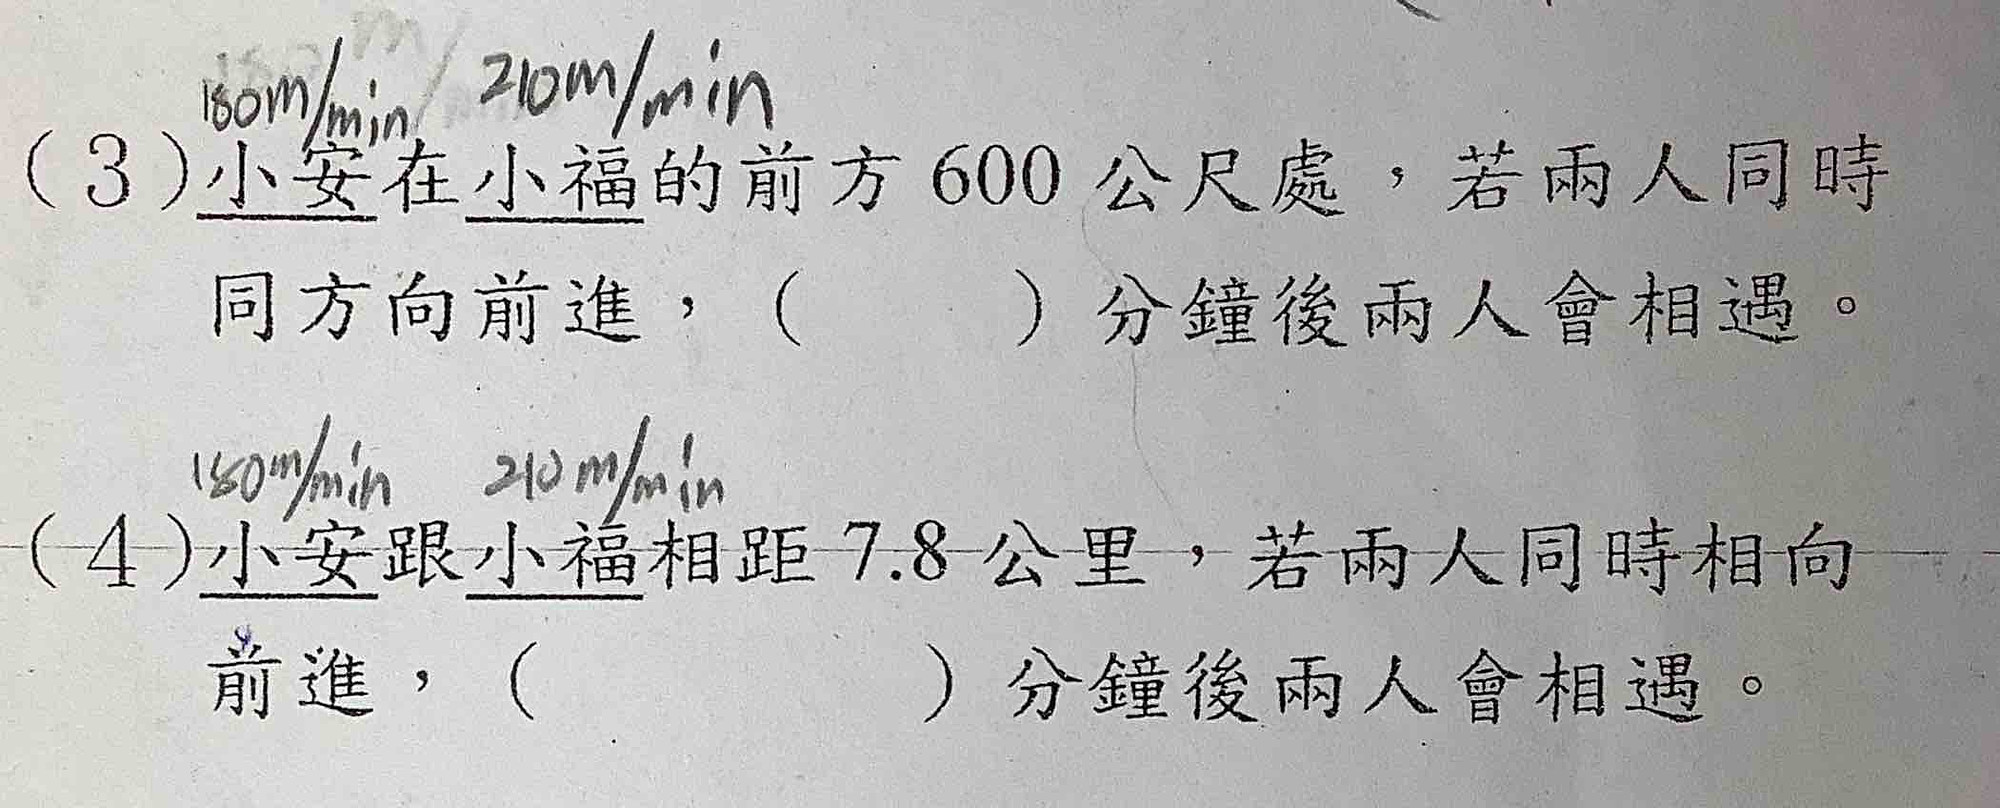 180m/min 210m/min
(3)小安在小福的前方600公尺處，若兩人同時
同方向前進，(　　)分鐘後兩人會相遇。
180m/min 210m/min
(4)小安跟小福相距7.8公里，若兩人同時相向
前進，(　　)分鐘後兩人會相遇。